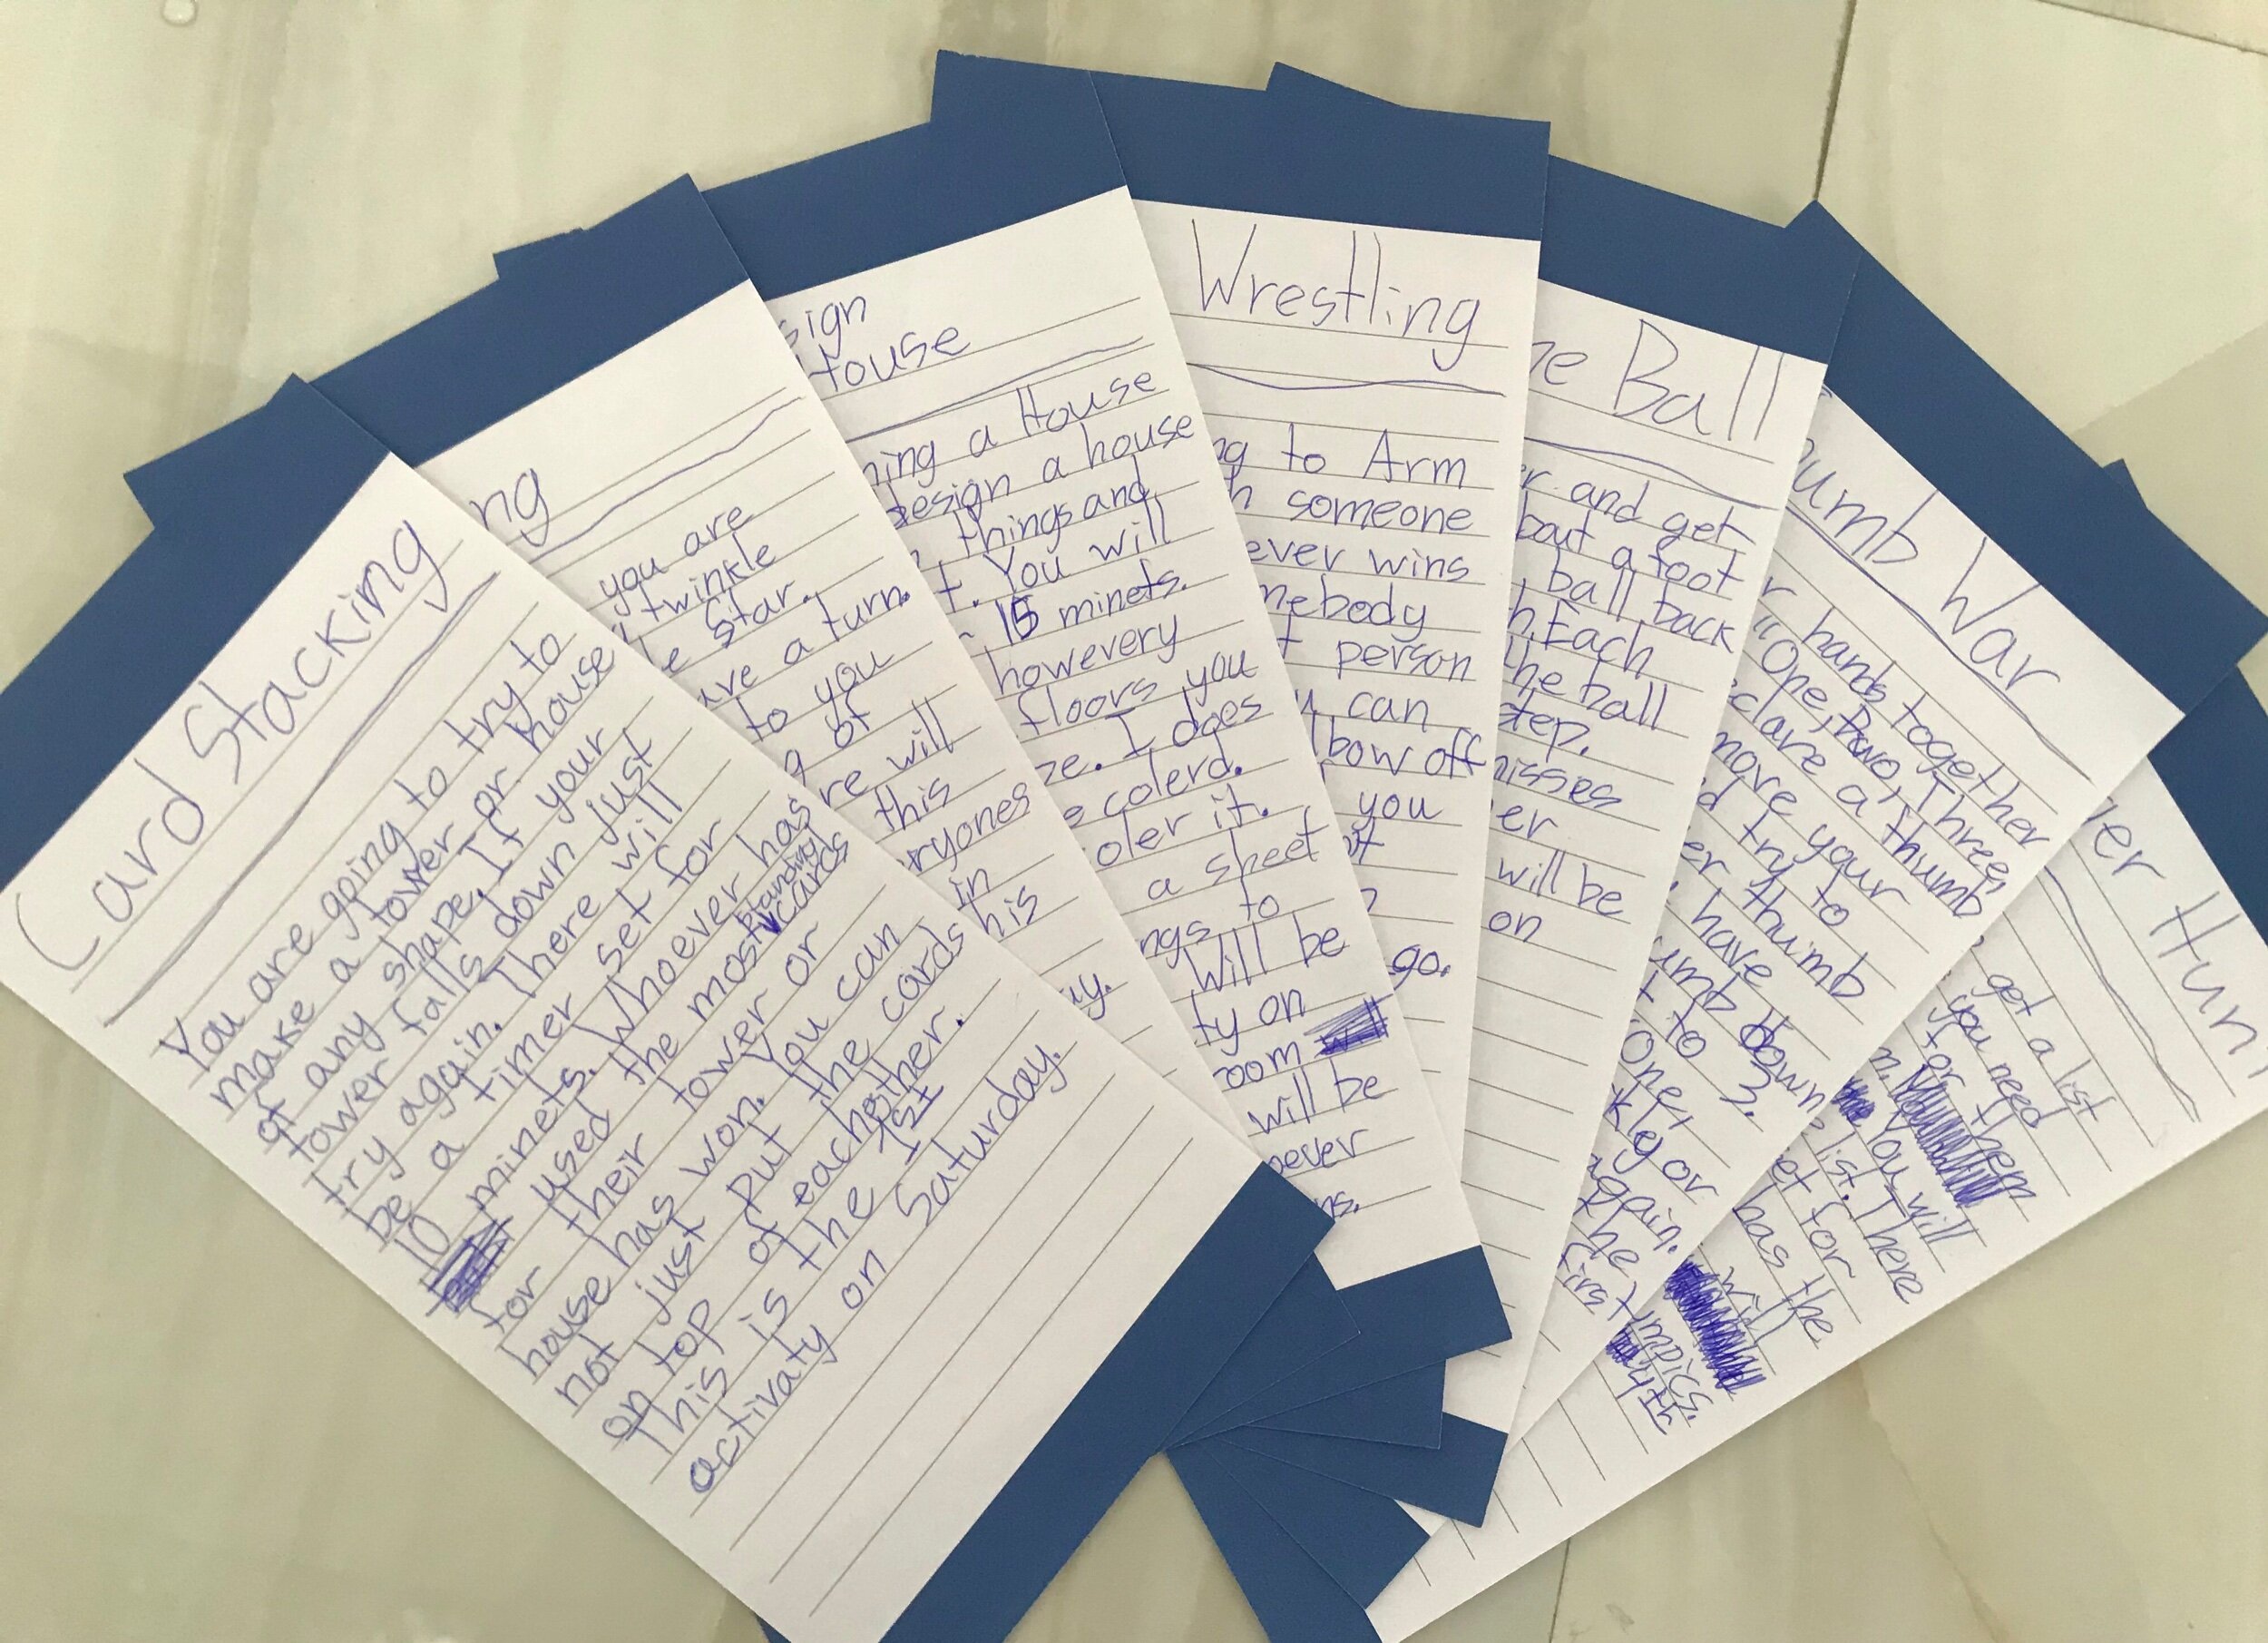 Card Stacking
You are going to try to
make a tower or house
of any shape. If your
tower falls down just
try again. There will
be a timer set for
10 minets. Whoever has
used the most standing cards
for their tower or
house has won. You can
not just put the cards
on top of eachother.
This is the 1st
activaty on Saturday.
ng
you are
twinkle
le Star.
ave a turn.
to you
g of
re will
this
ryones
in
his
ay.
sign
House
ning a House
design a house
things and
t. You will
15 minets.
howevery
floors you
ze. I does
e colerd.
oler it.
a sheet
ngs to
will be
ty on
room
will be
oever
ns.
Wrestling
ng to Arm
h someone
ever wins
mebody
t person
u can
lbow off
you
go.
he Ball
er and get
bout a foot
ball back
h. Each
the ball
step.
misses
er
will be
on
umb War
r hands together
"One, Two, Three,
eclare a thumb
move your
d try to
er thumb
have
umb down
t to 3.
One,
kley or
again.
the
first
ver Hun
get a list
you need
for them
m.
You will
list. There
et for
has the
will
mpics.